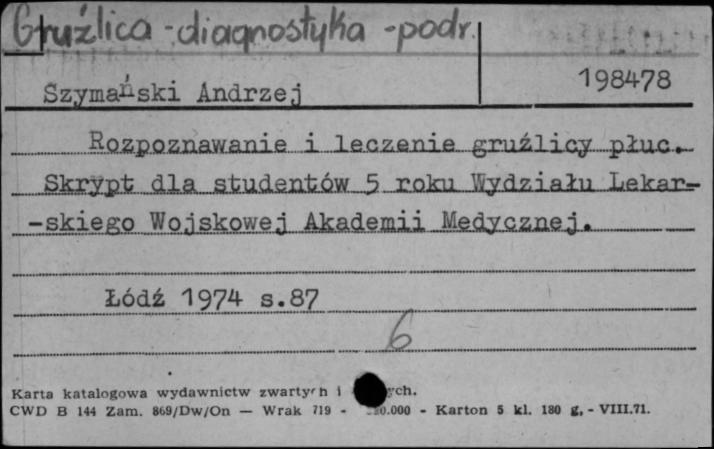 Gruźlica - diagnostyka - podr.
198478
Szymański Andrzej
Rozpoznawanie i leczenie gruźlicy płuc.
Skrypt dla studentów 5 roku Wydziału Lekar-
-skiego Wojskowej Akademii Medycznej.
Łódź 1974 s.87
6
Karta katalogowa wydawnictw zwartych i
CWD B 144 Zam. 869/Dw/On — Wrak 719 - .000 - Karton 5 kl. 180 g. - VIII.71.